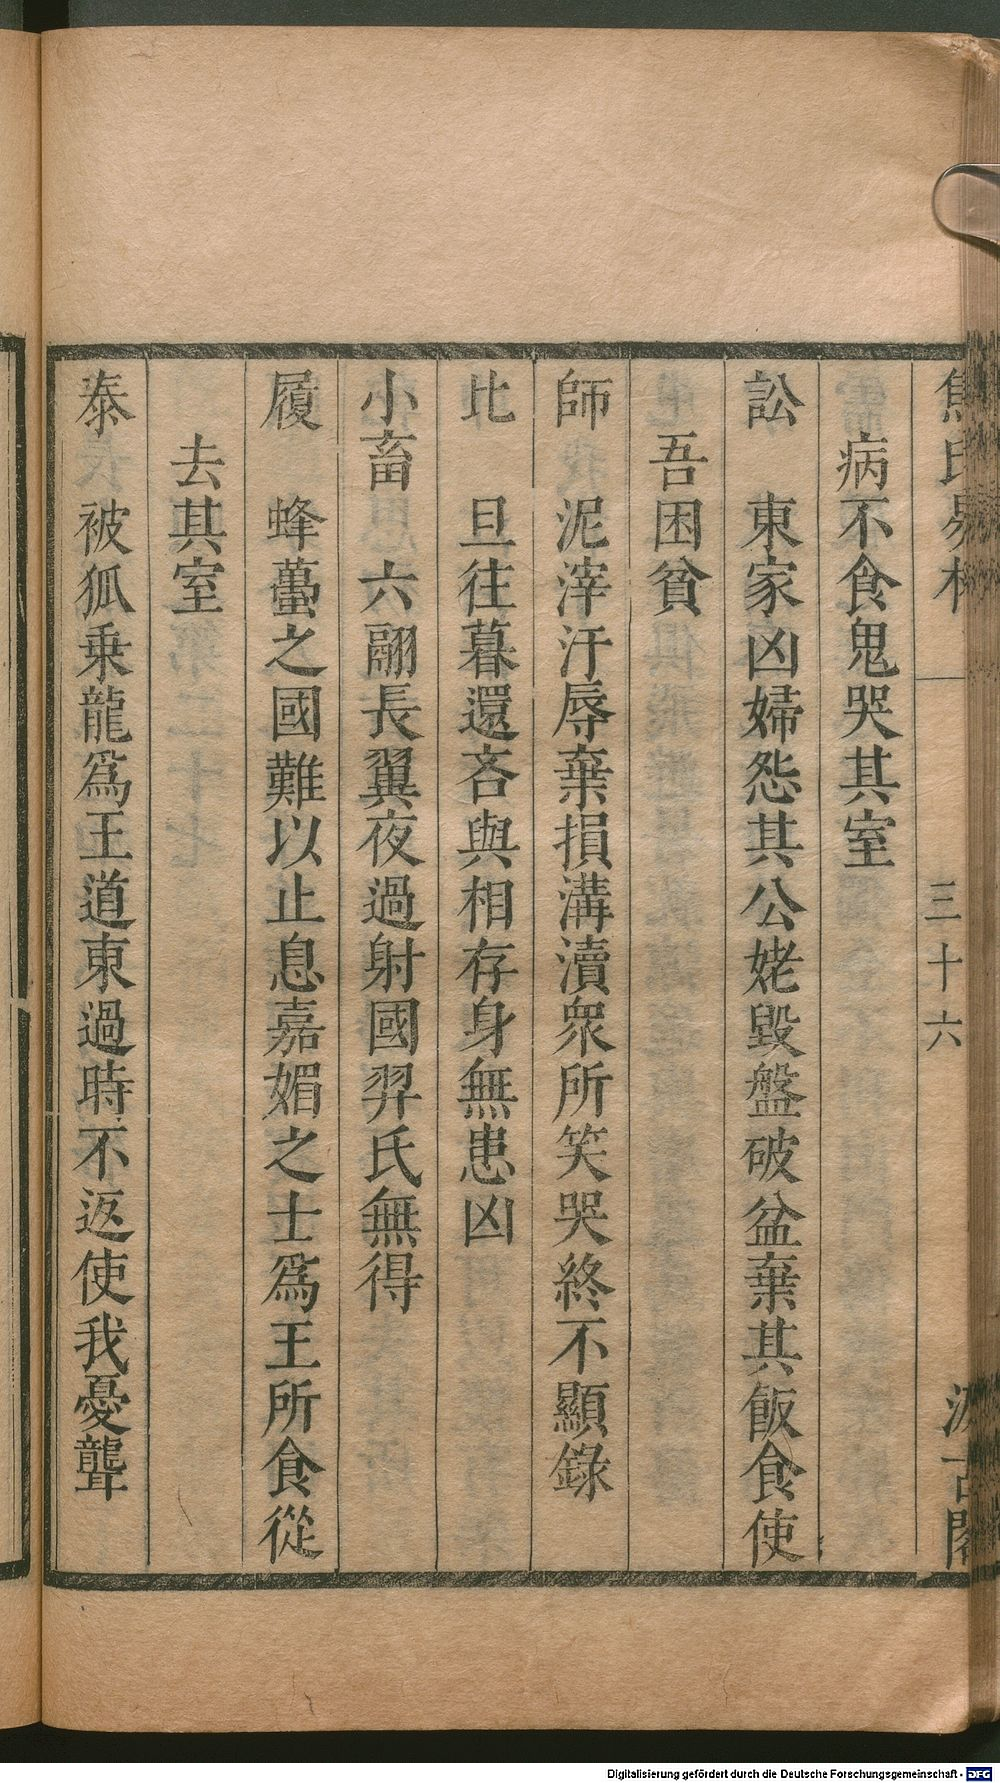 焦氏易林 三十六 汲古閣
病不食鬼哭其室
訟 東家凶婦怨其公姥毀盤破盆棄其飯食使
吾困貧
師 泥滓汙辱棄損溝瀆衆所笑哭終不顯錄
比 旦往暮還吝與相存身無患凶
小畜 六翮長翼夜過射國羿氏無得
履 蜂蠆之國難以止息嘉媚之士爲王所食從
去其室
泰 被狐乗龍爲王道東過時不返使我憂聾
Digitalisierung gefördert durch die Deutsche Forschungsgemeinschaft - DFG